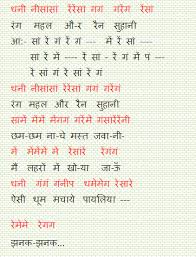 धनी नीसासां रेरेसा गग गरेग रेसां
रंग महल औ-र रैन सुहानी
आ:- सां रें गं रें गं --- में रें सां ----
सां रें में ---- रें सां - रें गं में पं ---
रें सां गं रें सां रें गं
धनी नीसासां रेरेसां गग गरेग
रंग महल और रैन सुहानी
सामे मेमे मेगग गरेमे गसारेरेनी
छम-छम ना-चे मस्त जवा-नी-
में मेमेमे मे रेसारे रेगंग
मैं लहरों में खो-या जा-ऊँ
धनी गंगं गंनीप धमेमेग रेसारे
ऐसी धूम मचाये पायलिया ---
रेमेमे रेगग
झनक-झनक...